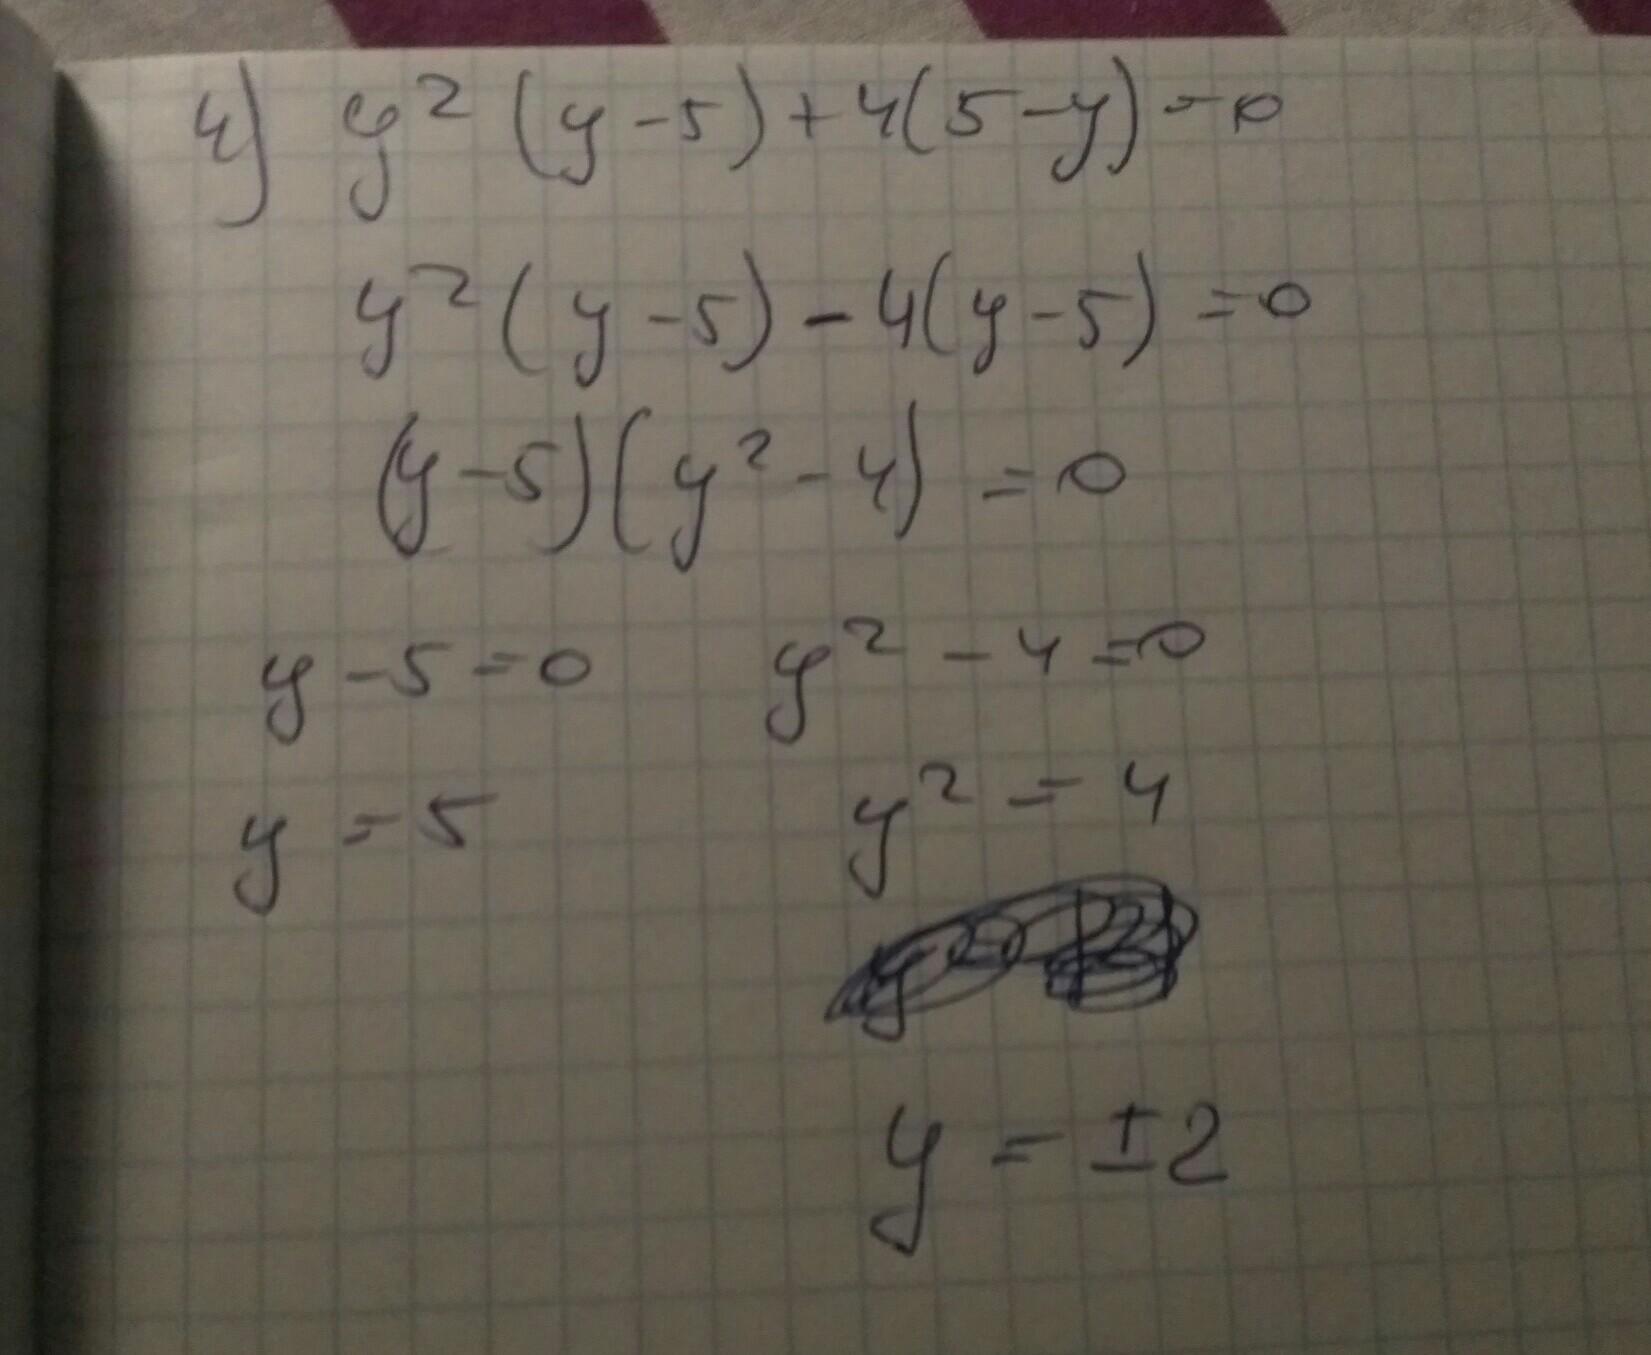 4) y² (y-5)+4(5-y)=0
y² (y-5)-4(y-5)=0
(y-5)(y²-4)=0
y-5=0 y²-4=0
y=5 y²=4
y=±2